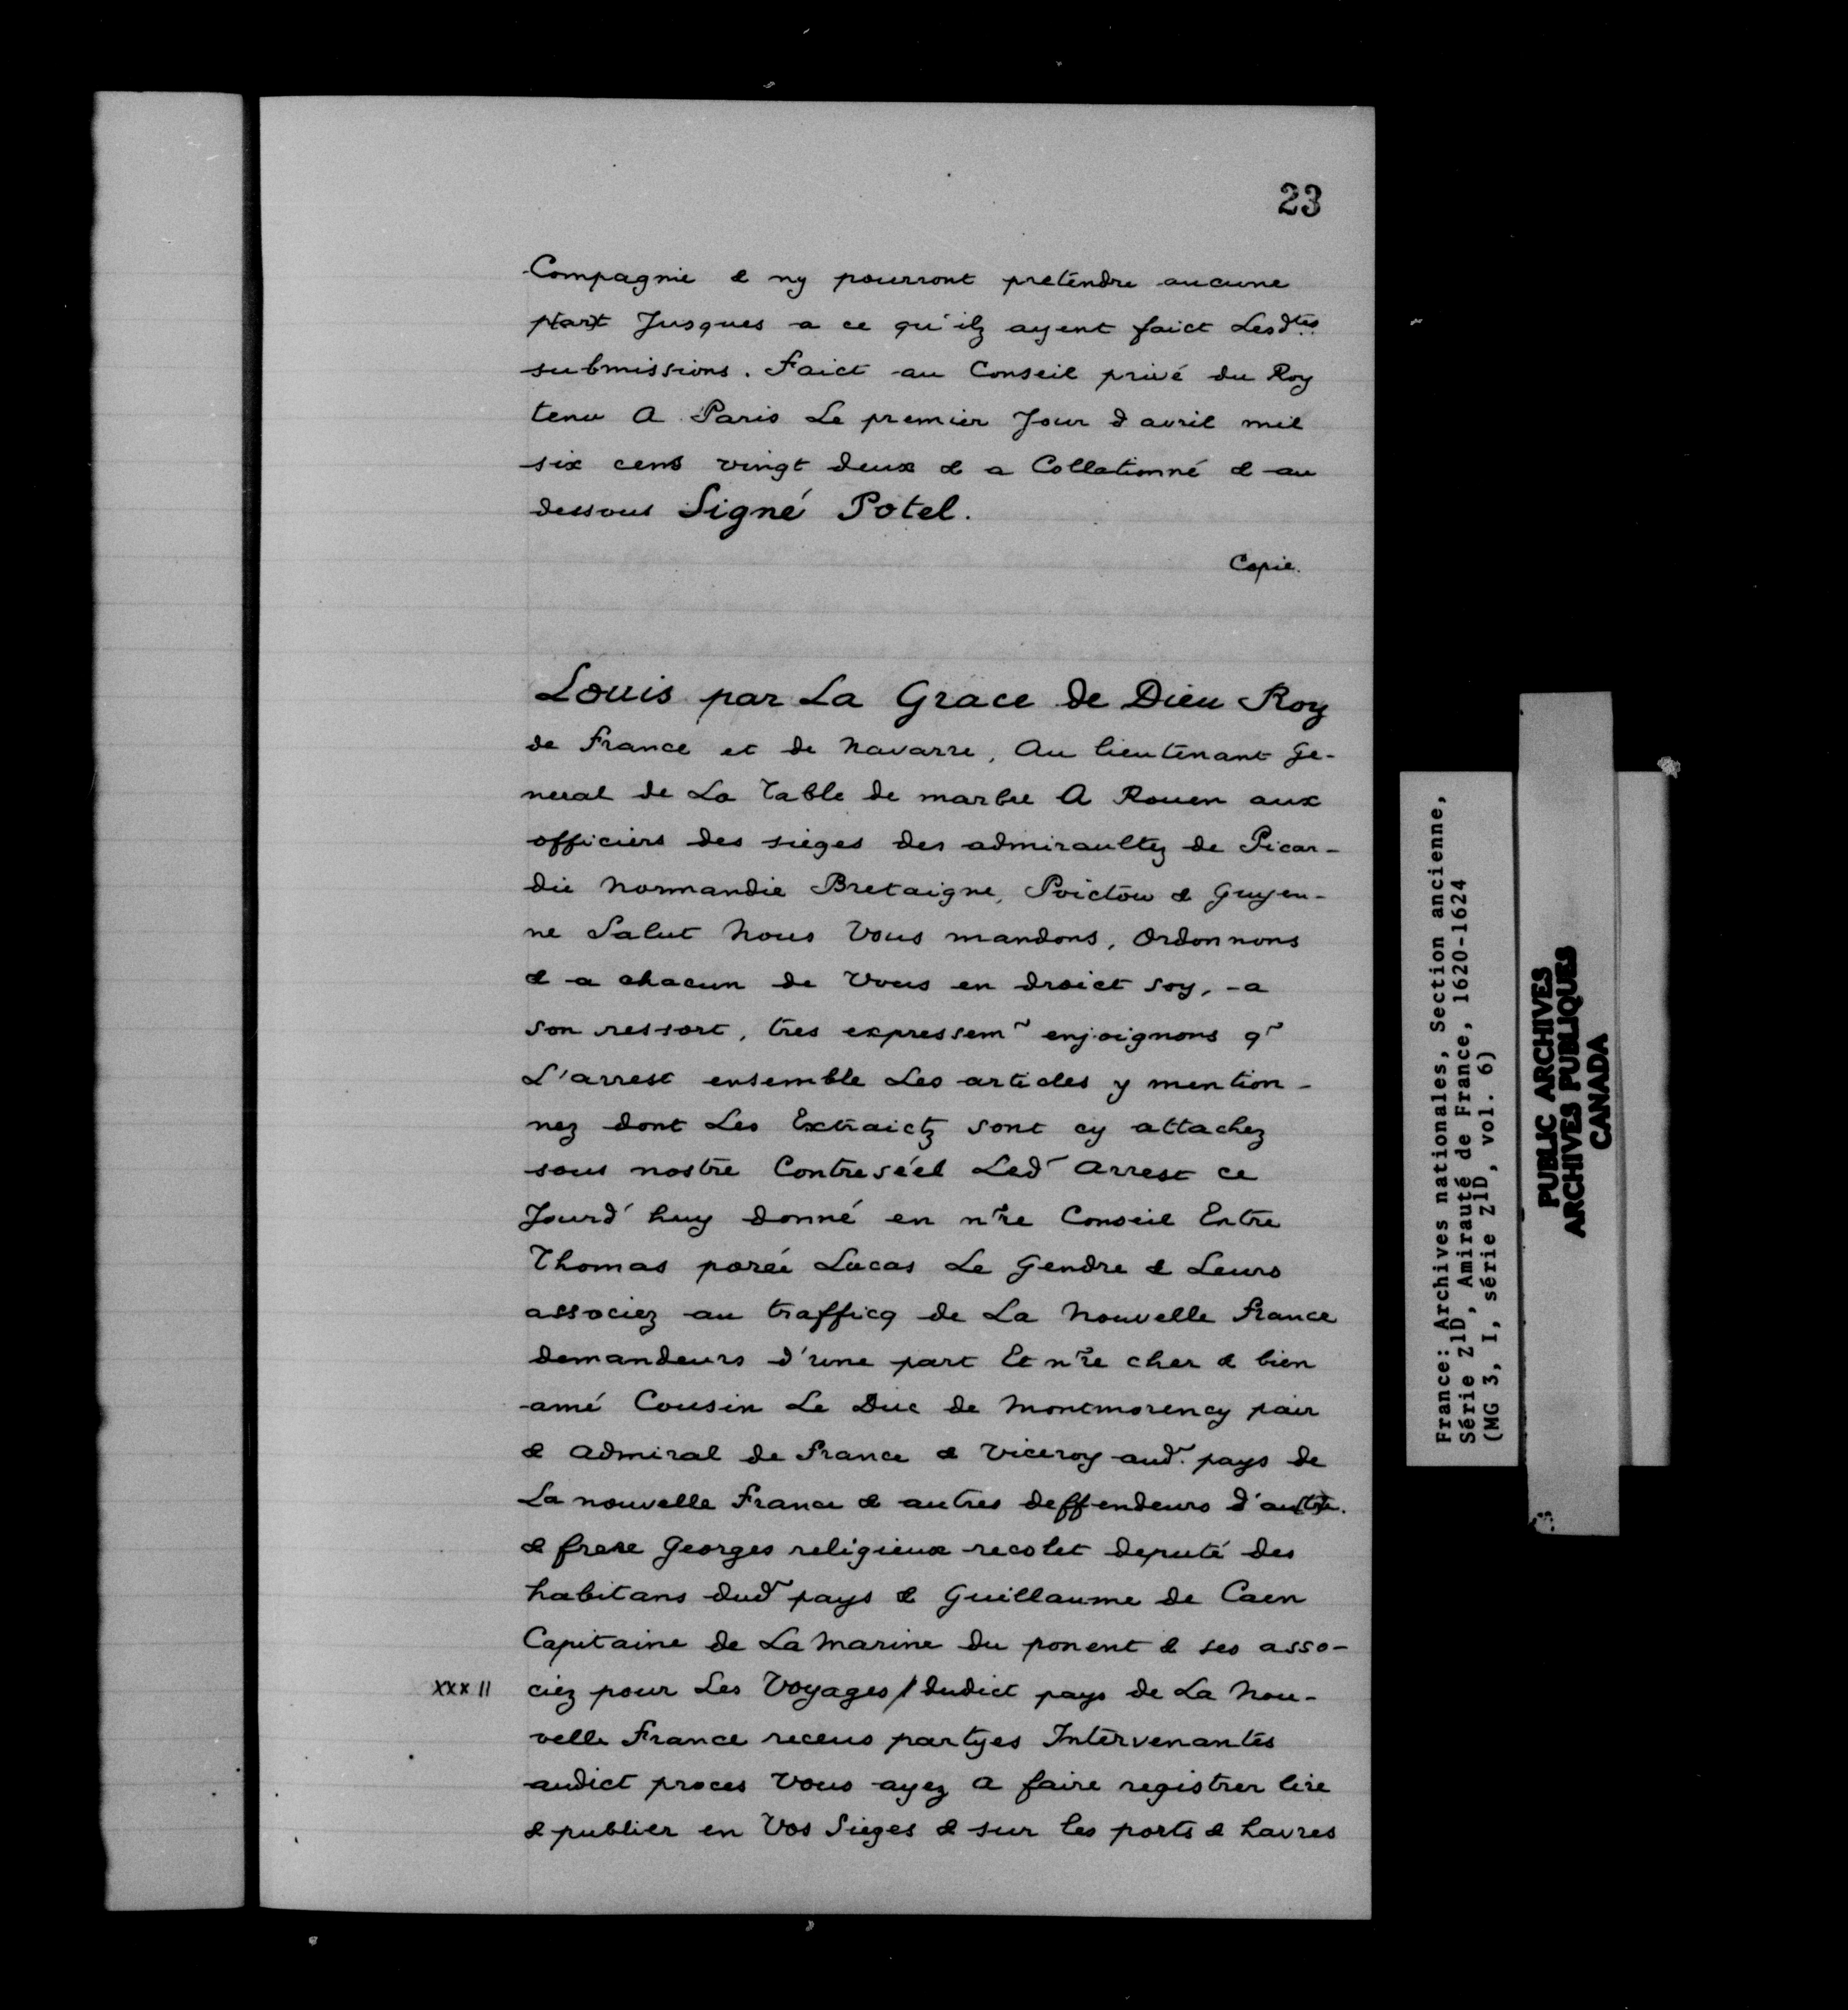 23
Compagnie & ny pourront pretendre aucune
part Jusques a ce qu'ilz ayent faict Lesdtes
submissions. Faict au Conseil privé du Roy
tenu A Paris Le premier Jour d avril mil
six cens vingt deux & a Collationné & au
dessous Signé Potel.
Copie.
Louis par La Grace de Dieu Roy
de France et de Navarre, Au lieutenant Ge-
neral de La Table de marbre A Rouen aux
officiers des sieges des admiraultez de Picar-
die Normandie Bretaigne, Poictou & Guyen-
ne Salut Nous Vous mandons, Ordonnons
& a chacun de Vous en droict soy, a
son ressort, tres expressem~ enjoignons q~
L'arrest ensemble Les articles y mention-
nez dont Les Extraictz sont cy attachez
sous nostre Contreséel Led~ Arrest ce
Jourd'huy donné en n~re Conseil Entre
Thomas porée Lucas Le Gendre & Leurs
associez au trafficq de La Nouvelle France
demandeurs d'une part Et n~re cher & bien
amé Cousin Le Duc de Montmorency pair
& Admiral de France & Viceroy aud~. pays de
La nouvelle France & autres deffendeurs d'autre.
& frere Georges religieux recolet deputé des
habitans dud~ pays & Guillaume de Caen
Capitaine de La Marine du ponent & ses asso-
XXXII ciez pour Les Voyages/dudict pays de La Nou-
velle France receus partyes Intervenantes
audict proces Vous ayez A faire registrer lire
& publier en Vos Sieges & sur les ports & havres
France: Archives nationales, Section ancienne,
Série Z1D, Amirauté de France, 1620-1624
(MG 3, I, série Z1D, vol. 6)
PUBLIC ARCHIVES
ARCHIVES PUBLIQUES
CANADA